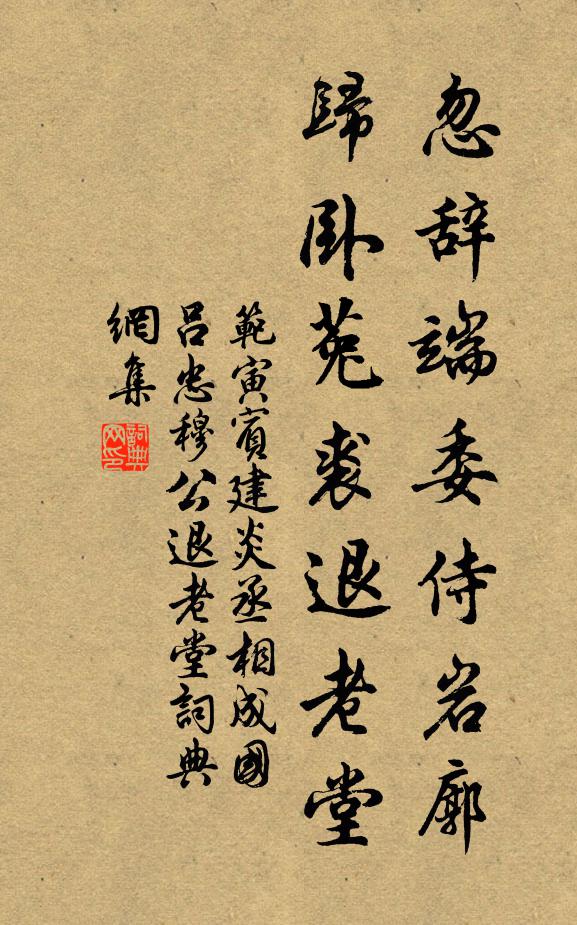 忽辞端委侍岩廓
歸卧菟裘退老堂
範寅賓建炎丞相成國
吕忠穆公退老堂詞典
網集
詞典
网印